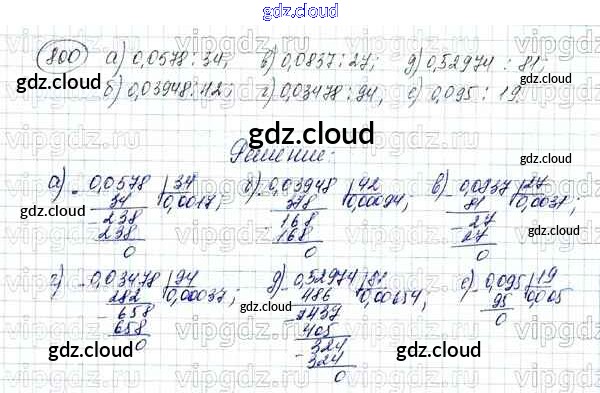 gdz.cloud
800 а) 0,0578 : 34, в) 0,0837 : 27; д) 0,52974 : 81;
б) 0,03948 : 42; г) 0,03478 : 94, е) 0,095 : 19.
gdz.cloud
gdz.cloud
gdz.cloud
gdz.cloud
Решение:
а) 0,0578 | 34 б) 0,03948 | 42 в) 0,0837 | 27
34 0,0017; 378 0,00094; 81 0,0031;
- 238 - 168 - 27
238 168 27
0 0 0
gdz.cloud
gdz.cloud
г) 0,03478 | 94 д) 0,52974 | 81 е) 0,095 | 19
282 0,00037; 486 0,00654; 95 0,005
- 658 - 437 0
658 405
0 - 324
324
0
gdz.cloud
gdz.cloud
gdz.cloud
gdz.cloud